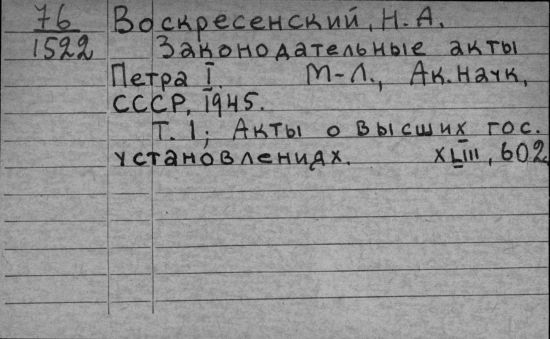 76 Воскресенский, Н. А.
1522 Законодательные акты
Петра I. М-Л., Ак. наук,
СССР, 1945.
Т. 1; Акты о высших гос.
установлениях. XLIII, 602